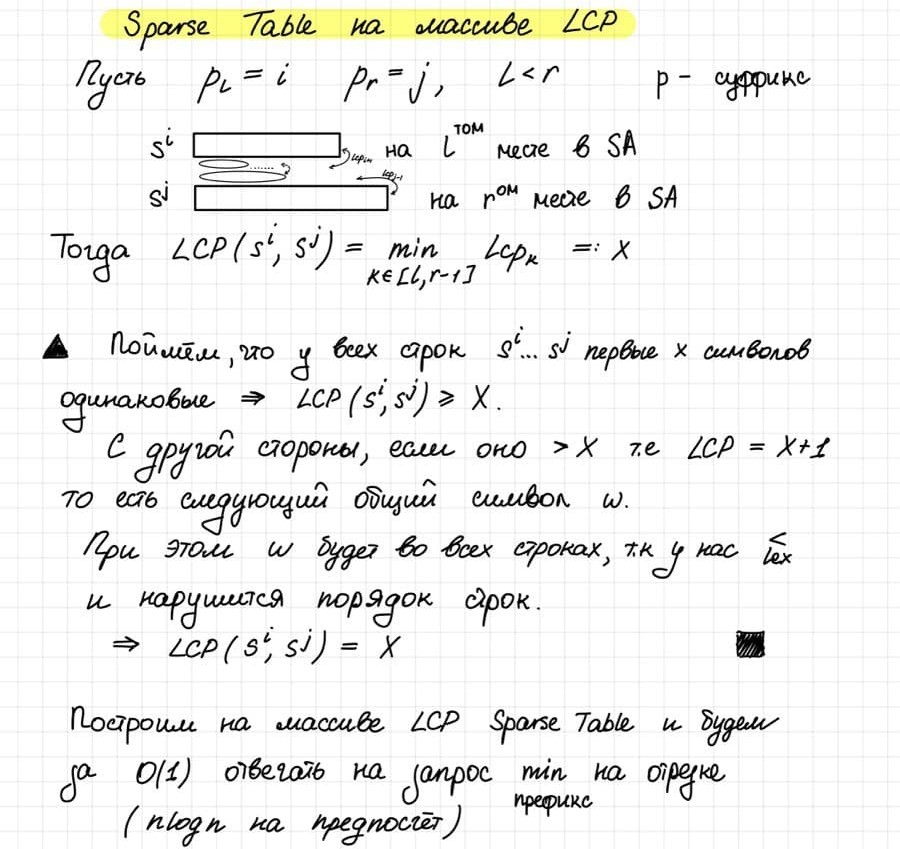 Sparse Table на массиве LCP
Пусть p_l = i p_r = j, l < r p - суффикс
s^i на l^том месте в SA
s^j на r^ом месте в SA
Тогда LCP(s^i, s^j) = min_{k∈[l,r-1]} Lcp_k =: x
▲ Поймём, что у всех строк s^i... s^j первые x символов
одинаковые ⇒ LCP(s^i, s^j) ⩾ x.
С другой стороны, если оно > x т.е LCP = x+1
то есть следующий общий символ w.
При этом w будет во всех строках, т.к у нас <_lex
и нарушится порядок строк.
⇒ LCP(s^i, s^j) = x
Построим на массиве LCP Sparse Table и будем
за O(1) отвечать на запрос min на отрезке
префикс
(nlogn на предпосчёт)